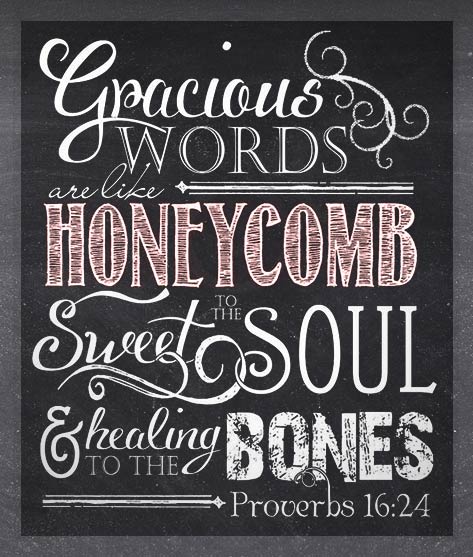 Gracious
WORDS
are like
HONEYCOMB
Sweet TO THE SOUL
& healing
TO THE
BONES
Proverbs 16:24